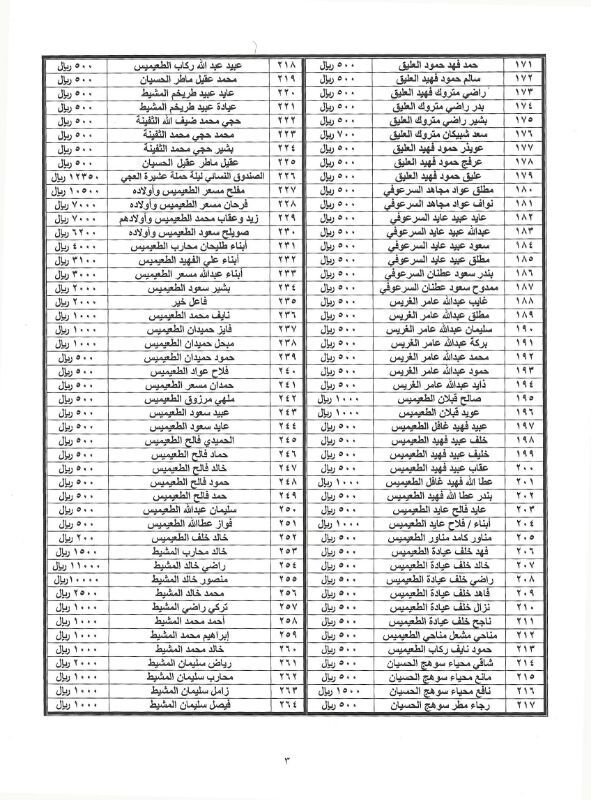 ١٧١ حمد فهد حمود العليق ٥٠٠ ريال
١٧٢ سالم حمود فهيد العليق ٥٠٠ ريال
١٧٣ راضي متروك فهيد العليق ٥٠٠ ريال
١٧٤ بدر راضي متروك العليق ٥٠٠ ريال
١٧٥ بشير راضي متروك العليق ٥٠٠ ريال
١٧٦ سعد شبيكان متروك العليق ٧٠٠ ريال
١٧٧ عويذر حمود فهيد العليق ٥٠٠ ريال
١٧٨ عرفج حمود فهيد العليق ٥٠٠ ريال
١٧٩ عليق حمود فهيد العليق ٥٠٠ ريال
١٨٠ مطلق عواد مجاهد السرعوفي ٥٠٠ ريال
١٨١ نواف عواد مجاهد السرعوفي ٥٠٠ ريال
١٨٢ عايد عبيد عايد السرعوفي ٥٠٠ ريال
١٨٣ عبدالله عبيد عايد السرعوفي ٥٠٠ ريال
١٨٤ سعود عبيد عايد السرعوفي ٥٠٠ ريال
١٨٥ مطلق عبيد عايد السرعوفي ٥٠٠ ريال
١٨٦ بندر سعود عطنان السرعوفي ٥٠٠ ريال
١٨٧ ممدوح سعود عطنان السرعوفي ٥٠٠ ريال
١٨٨ غايب عبدالله عامر الغريس ٥٠٠ ريال
١٨٩ مطلق عبدالله عامر الغريس ٥٠٠ ريال
١٩٠ سليمان عبدالله عامر الغريس ٥٠٠ ريال
١٩١ بركة عبدالله عامر الغريس ٥٠٠ ريال
١٩٢ محمد عبدالله عامر الغريس ٥٠٠ ريال
١٩٣ حمود عبدالله عامر الغريس ٥٠٠ ريال
١٩٤ ذايد عبدالله عامر الغريس ٥٠٠ ريال
١٩٥ صالح قبلان الطعيميس ١٠٠٠ ريال
١٩٦ عويد قبلان الطعيميس ١٠٠٠ ريال
١٩٧ عبيد فهيد غافل الطعيميس ٥٠٠ ريال
١٩٨ خلف عبيد فهيد الطعيميس ٥٠٠ ريال
١٩٩ خليف عبيد فهيد الطعيميس ٥٠٠ ريال
٢٠٠ عقاب عبيد فهيد الطعيميس ٥٠٠ ريال
٢٠١ عطا الله فهيد غافل الطعيميس ١٠٠٠ ريال
٢٠٢ بندر عطا الله فهيد الطعيميس ٥٠٠ ريال
٢٠٣ عايد فالح عايد الطعيميس ٥٠٠ ريال
٢٠٤ أبناء / فلاح عايد الطعيميس ١٠٠٠ ريال
٢٠٥ مناور كامد مناور الطعيميس ٥٠٠ ريال
٢٠٦ فهد خلف عيادة الطعيميس ٥٠٠ ريال
٢٠٧ خالد خلف عيادة الطعيميس ٥٠٠ ريال
٢٠٨ راضي خلف عيادة الطعيميس ٥٠٠ ريال
٢٠٩ فاهد خلف عيادة الطعيميس ٥٠٠ ريال
٢١٠ نزال خلف عيادة الطعيميس ٥٠٠ ريال
٢١١ ناجح خلف عيادة الطعيميس ٥٠٠ ريال
٢١٢ مناحي مشعل مناحي الطعيميس ٥٠٠ ريال
٢١٣ حمود نايف ركاب الطعيميس ٥٠٠ ريال
٢١٤ شافي محياء سوهج الحسيان ٥٠٠ ريال
٢١٥ مانع محياء سوهج الحسيان ٥٠٠ ريال
٢١٦ نافع محياء سوهج الحسيان ١٥٠٠ ريال
٢١٧ رجاء مطر سوهج الحسيان ٥٠٠ ريال
٢١٨ عبيد عبد الله ركاب الطعيميس ٥٠٠ ريال
٢١٩ محمد عقيل ماطر الحسيان ٥٠٠ ريال
٢٢٠ عايد عبيد طريخم المشيط ٥٠٠ ريال
٢٢١ عيادة عبيد طريخم المشيط ٥٠٠ ريال
٢٢٢ محمد ضيف الله الثقينة ٥٠٠ ريال
٢٢٣ محمد حجي محمد الثقينة ٥٠٠ ريال
٢٢٤ بشير حجي محمد الثقينة ٥٠٠ ريال
٢٢٥ عقيل ماطر عقيل الحسيان ٥٠٠ ريال
٢٢٦ الصندوق النسائي ليلة حملة عشيرة العجي ١٢٣٥٠ ريال
٢٢٧ مفلح مسعر الطعيميس وأولاده ١٠٥٠٠ ريال
٢٢٨ فرحان مسعر الطعيميس وأولاده ٧٠٠٠ ريال
٢٢٩ زيد وعقاب محمد الطعيميس وأولادهم ٧٠٠٠ ريال
٢٣٠ صويلح سعود الطعيميس وأولاده ٦٢٠٠ ريال
٢٣١ أبناء طليحان محارب الطعيميس ٤٠٠٠ ريال
٢٣٢ أبناء علي الفهيد الطعيميس ٣١٠٠ ريال
٢٣٣ أبناء عبدالله مسعر الطعيميس ٣٠٠٠ ريال
٢٣٤ بشير سعود الطعيميس ٢٠٠٠ ريال
٢٣٥ فاعل خير ٢٠٠٠ ريال
٢٣٦ نايف محمد الطعيميس ١٠٠٠ ريال
٢٣٧ فايز حميدان الطعيميس ١٠٠٠ ريال
٢٣٨ مبحل حميدان الطعيميس ١٠٠٠ ريال
٢٣٩ حمود حميدان الطعيميس ٥٠٠ ريال
٢٤٠ فلاح عواد الطعيميس ٥٠٠ ريال
٢٤١ حمدان مسعر الطعيميس ٥٠٠ ريال
٢٤٢ ملهي مرزوق الطعيميس ٥٠٠ ريال
٢٤٣ عبيد سعود الطعيميس ٥٠٠ ريال
٢٤٤ عايد سعود الطعيميس ٥٠٠ ريال
٢٤٥ الحميدي فالح الطعيميس ٥٠٠ ريال
٢٤٦ حماد فالح الطعيميس ٥٠٠ ريال
٢٤٧ خالد فالح الطعيميس ٥٠٠ ريال
٢٤٨ حمود فالح الطعيميس ٥٠٠ ريال
٢٤٩ حمد فالح الطعيميس ٥٠٠ ريال
٢٥٠ سليمان عبدالله الطعيميس ٥٠٠ ريال
٢٥١ فواز عطاالله الطعيميس ٥٠٠ ريال
٢٥٢ خالد خلف الطعيميس ٢٠٠ ريال
٢٥٣ خالد محارب المشيط ١٥٠٠ ريال
٢٥٤ راضي خالد المشيط ١١٠٠٠ ريال
٢٥٥ منصور خالد المشيط ١٠٠٠٠ ريال
٢٥٦ محمد خالد المشيط ٢٥٠٠ ريال
٢٥٧ تركي راضي المشيط ١٠٠٠ ريال
٢٥٨ أحمد محمد المشيط ١٠٠٠ ريال
٢٥٩ إبراهيم محمد المشيط ١٠٠٠ ريال
٢٦٠ خالد محمد المشيط ١٠٠٠ ريال
٢٦١ رياض سليمان المشيط ٢٠٠٠ ريال
٢٦٢ محارب سليمان المشيط ١٠٠٠ ريال
٢٦٣ زامل سليمان المشيط ١٠٠٠ ريال
٢٦٤ فيصل سليمان المشيط ١٠٠٠ ريال
٣